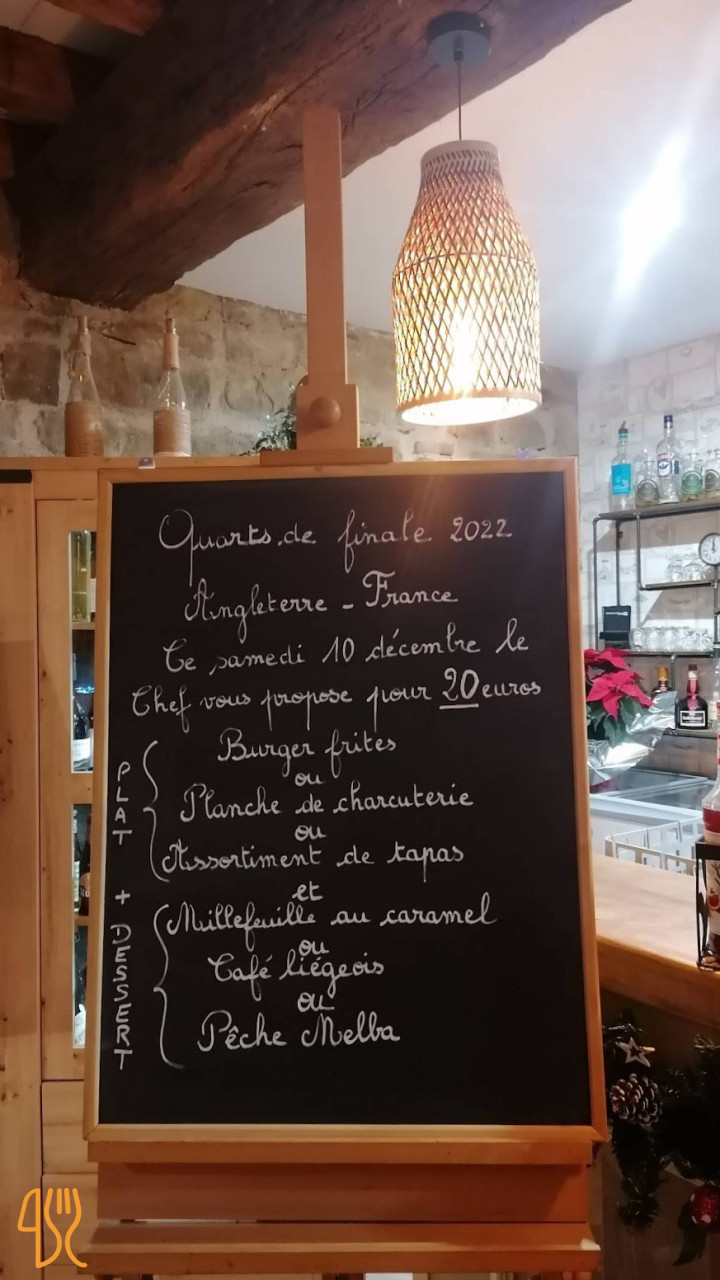 Quarts de finale 2022
Angleterre - France
Ce samedi 10 décembre le
Chef vous propose pour 20 euros
PLAT + DESSERT
Burger frites
ou
Planche de charcuterie
ou
Assortiment de tapas
et
Millefeuille au caramel
ou
Café liégeois
ou
Pêche Melba